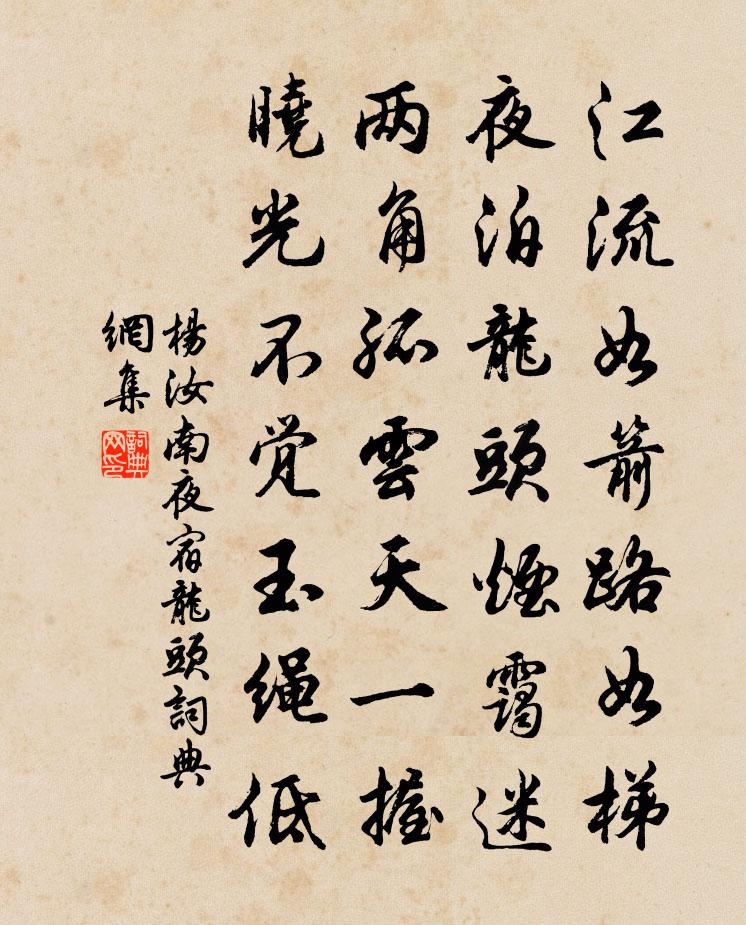 江流如箭路如梯
夜泊龍頭煙靄迷
两角孤雲天一握
曉光不觉玉绳低
楊汝南夜宿龍頭詞典
網集
詞典
网印